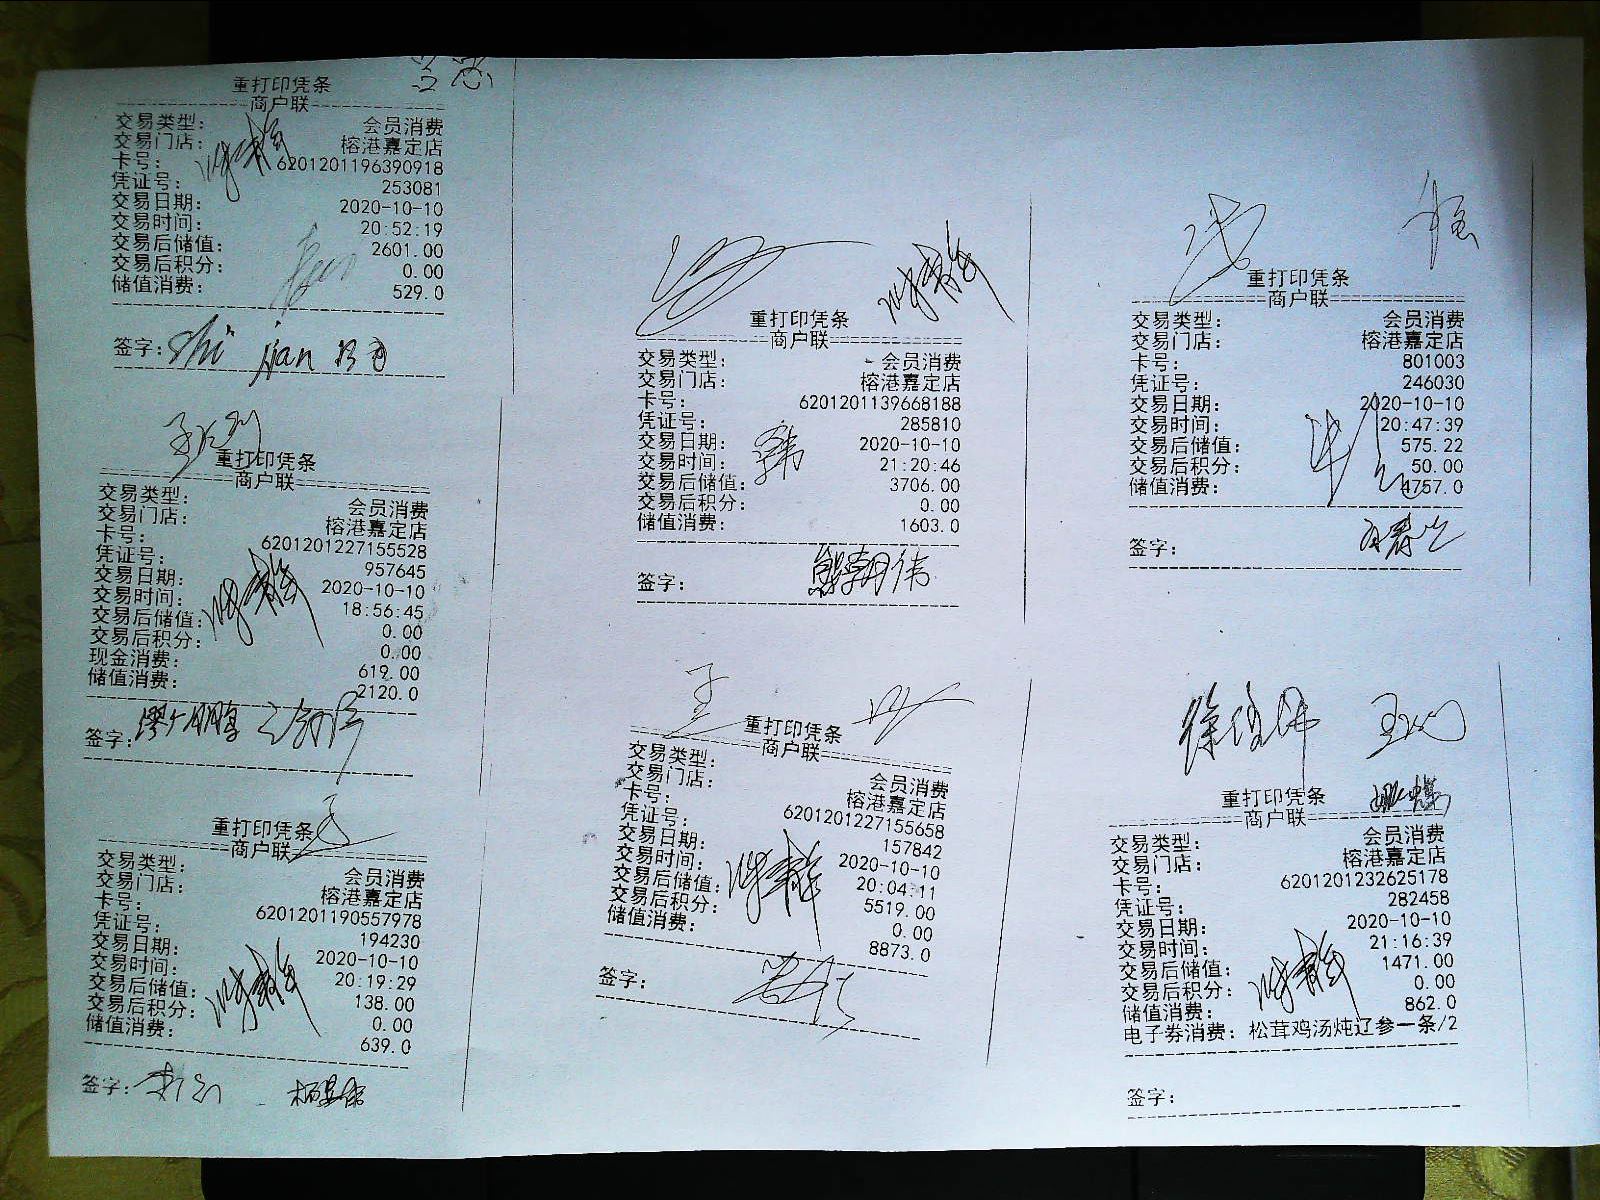 重打印凭条
商户联
交易类型: 会员消费
交易门店: 榕港嘉定店
卡号: 6201201196390918
凭证号: 253081
交易日期: 2020-10-10
交易时间: 20:52:19
交易后储值: 2601.00
交易后积分: 0.00
储值消费: 529.0
签字: Shi jian
重打印凭条
商户联
交易类型: 会员消费
交易门店: 榕港嘉定店
卡号: 6201201227155528
凭证号: 957645
交易日期: 2020-10-10
交易时间: 18:56:45
交易后储值: 0.00
交易后积分: 0.00
现金消费: 619.00
储值消费: 2120.0
签字:
重打印凭条
商户联
交易类型: 会员消费
交易门店: 榕港嘉定店
卡号: 6201201190557978
凭证号: 194230
交易日期: 2020-10-10
交易时间: 20:19:29
交易后储值: 138.00
交易后积分: 0.00
储值消费: 639.0
签字:
重打印凭条
商户联
交易类型: 会员消费
交易门店: 榕港嘉定店
卡号: 6201201139668188
凭证号: 285810
交易日期: 2020-10-10
交易时间: 21:20:46
交易后储值: 3706.00
交易后积分: 0.00
储值消费: 1603.0
签字: 熊朝伟
重打印凭条
商户联
交易类型: 会员消费
交易门店: 榕港嘉定店
卡号: 6201201227155658
凭证号: 157842
交易日期: 2020-10-10
交易时间: 20:04:11
交易后储值: 5519.00
交易后积分: 0.00
储值消费: 8873.0
签字:
重打印凭条
商户联
交易类型: 会员消费
交易门店: 榕港嘉定店
卡号: 801003
凭证号: 246030
交易日期: 2020-10-10
交易时间: 20:47:39
交易后储值: 575.22
交易后积分: 50.00
储值消费: 4757.0
签字:
重打印凭条
商户联
交易类型: 会员消费
交易门店: 榕港嘉定店
卡号: 6201201232625178
凭证号: 282458
交易日期: 2020-10-10
交易时间: 21:16:39
交易后储值: 1471.00
交易后积分: 0.00
储值消费: 862.0
电子券消费: 松茸鸡汤炖辽参一条/2
签字: